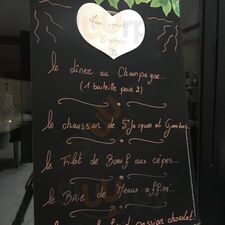 le dîner au Champagne...
(1 bouteille pour 2)
le chausson de St Jacques et Gambas
le Filet de Boeuf aux cèpes...
le Brie de Meaux affiné...
fruit passion chocolat